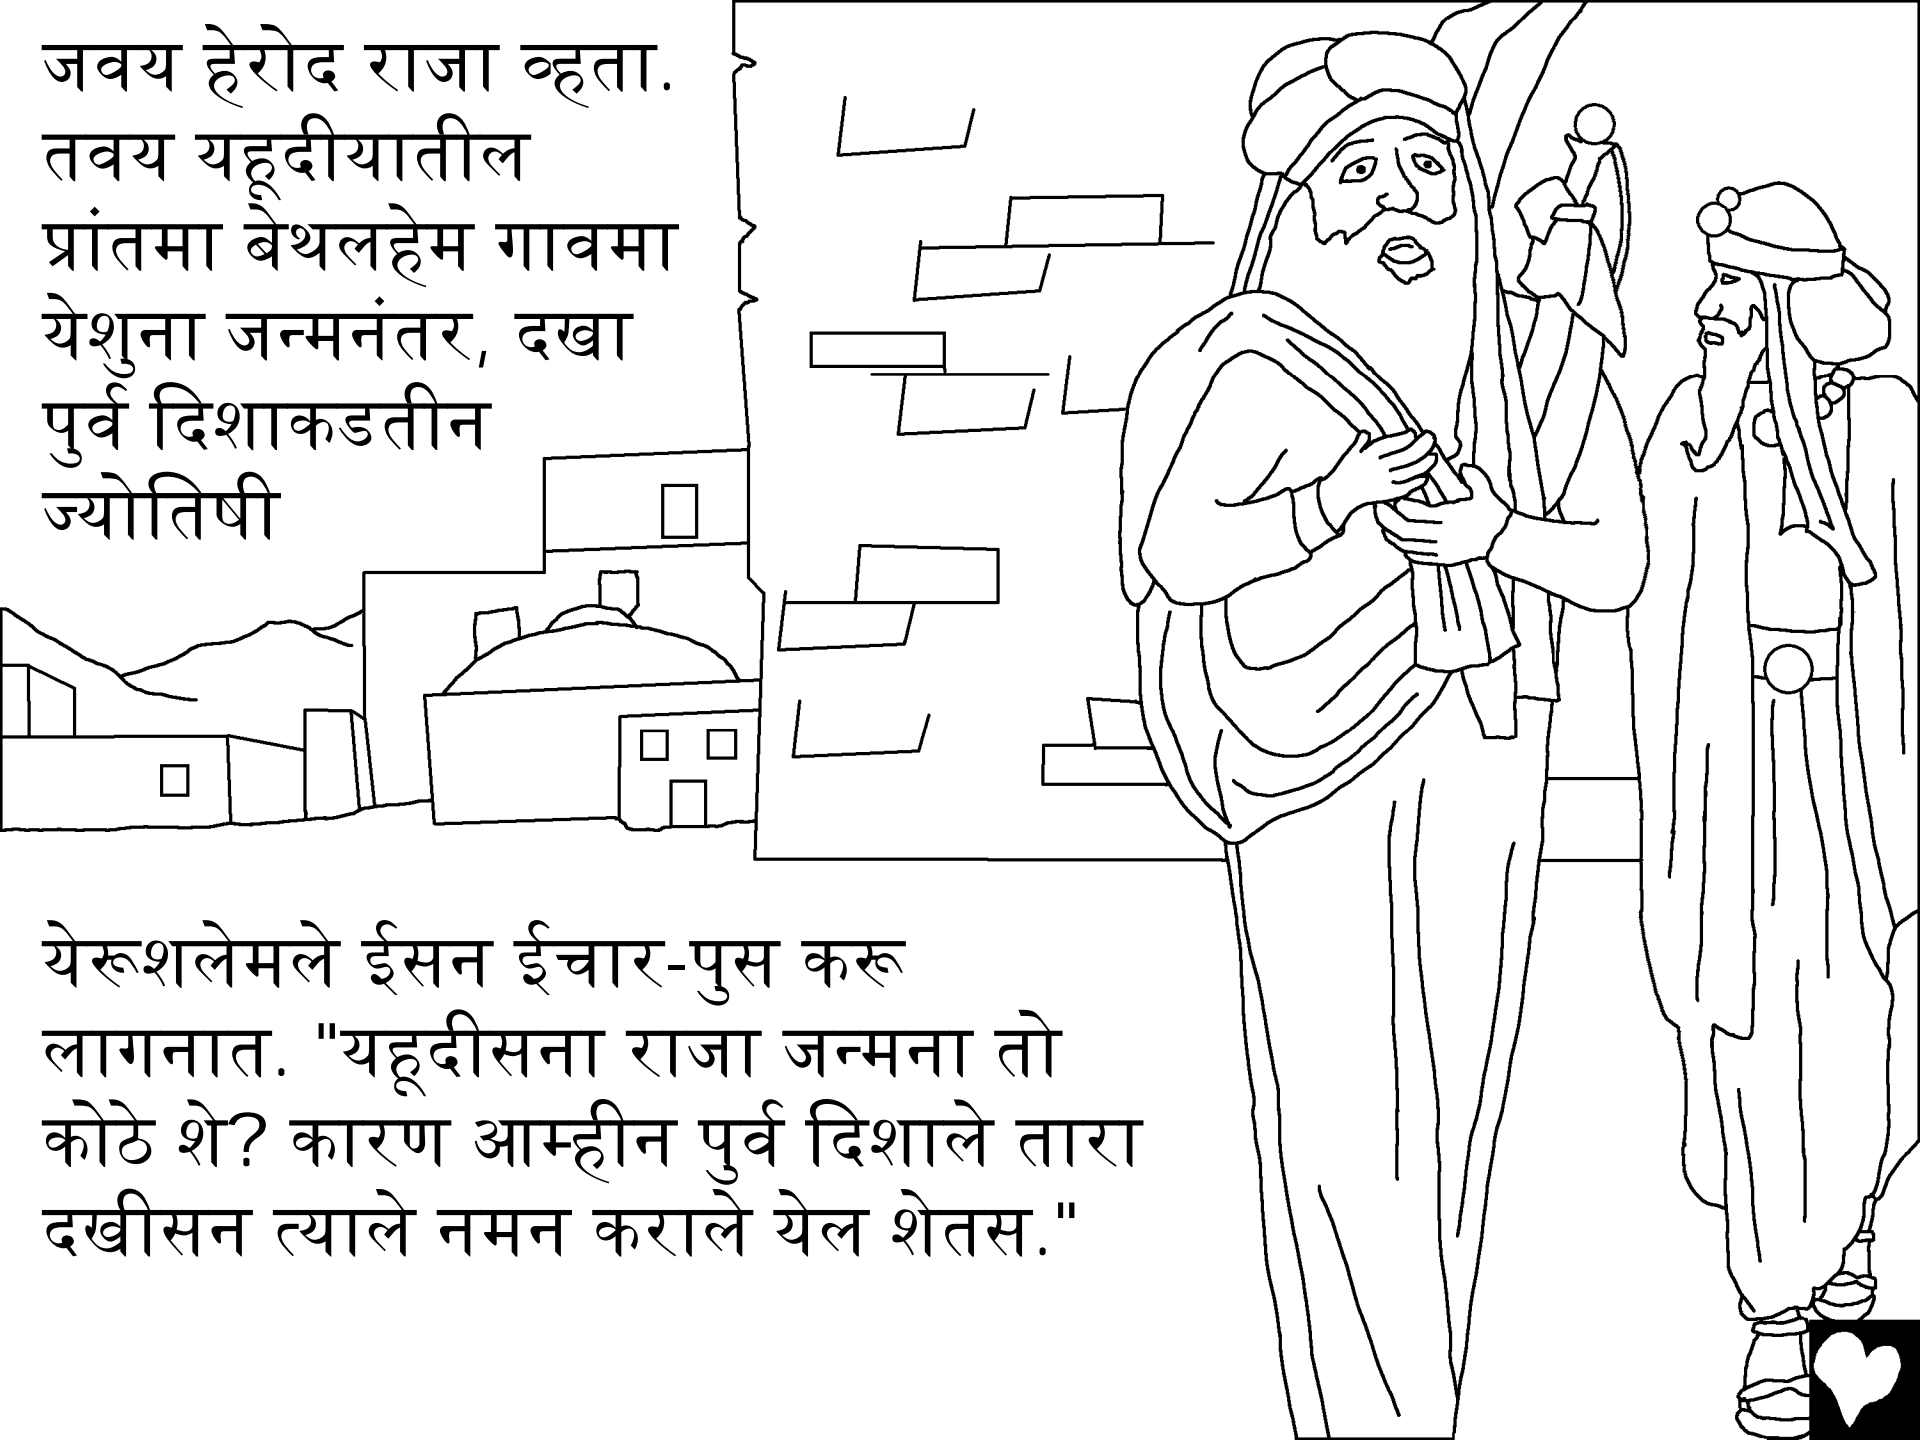 जवय हेरोद राजा व्हता.
तवय यहूदीयातील
प्रांतमा बेथलहेम गावमा
येशुना जन्मनंतर, दखा
पुर्व दिशाकडतीन
ज्योतिषी
येरूशलेमले ईसन ईचार-पुस करू
लागनात. "यहूदीसना राजा जन्मना तो
कोठे शे? कारण आम्हीन पुर्व दिशाले तारा
दखीसन त्याले नमन कराले येल शेतस."